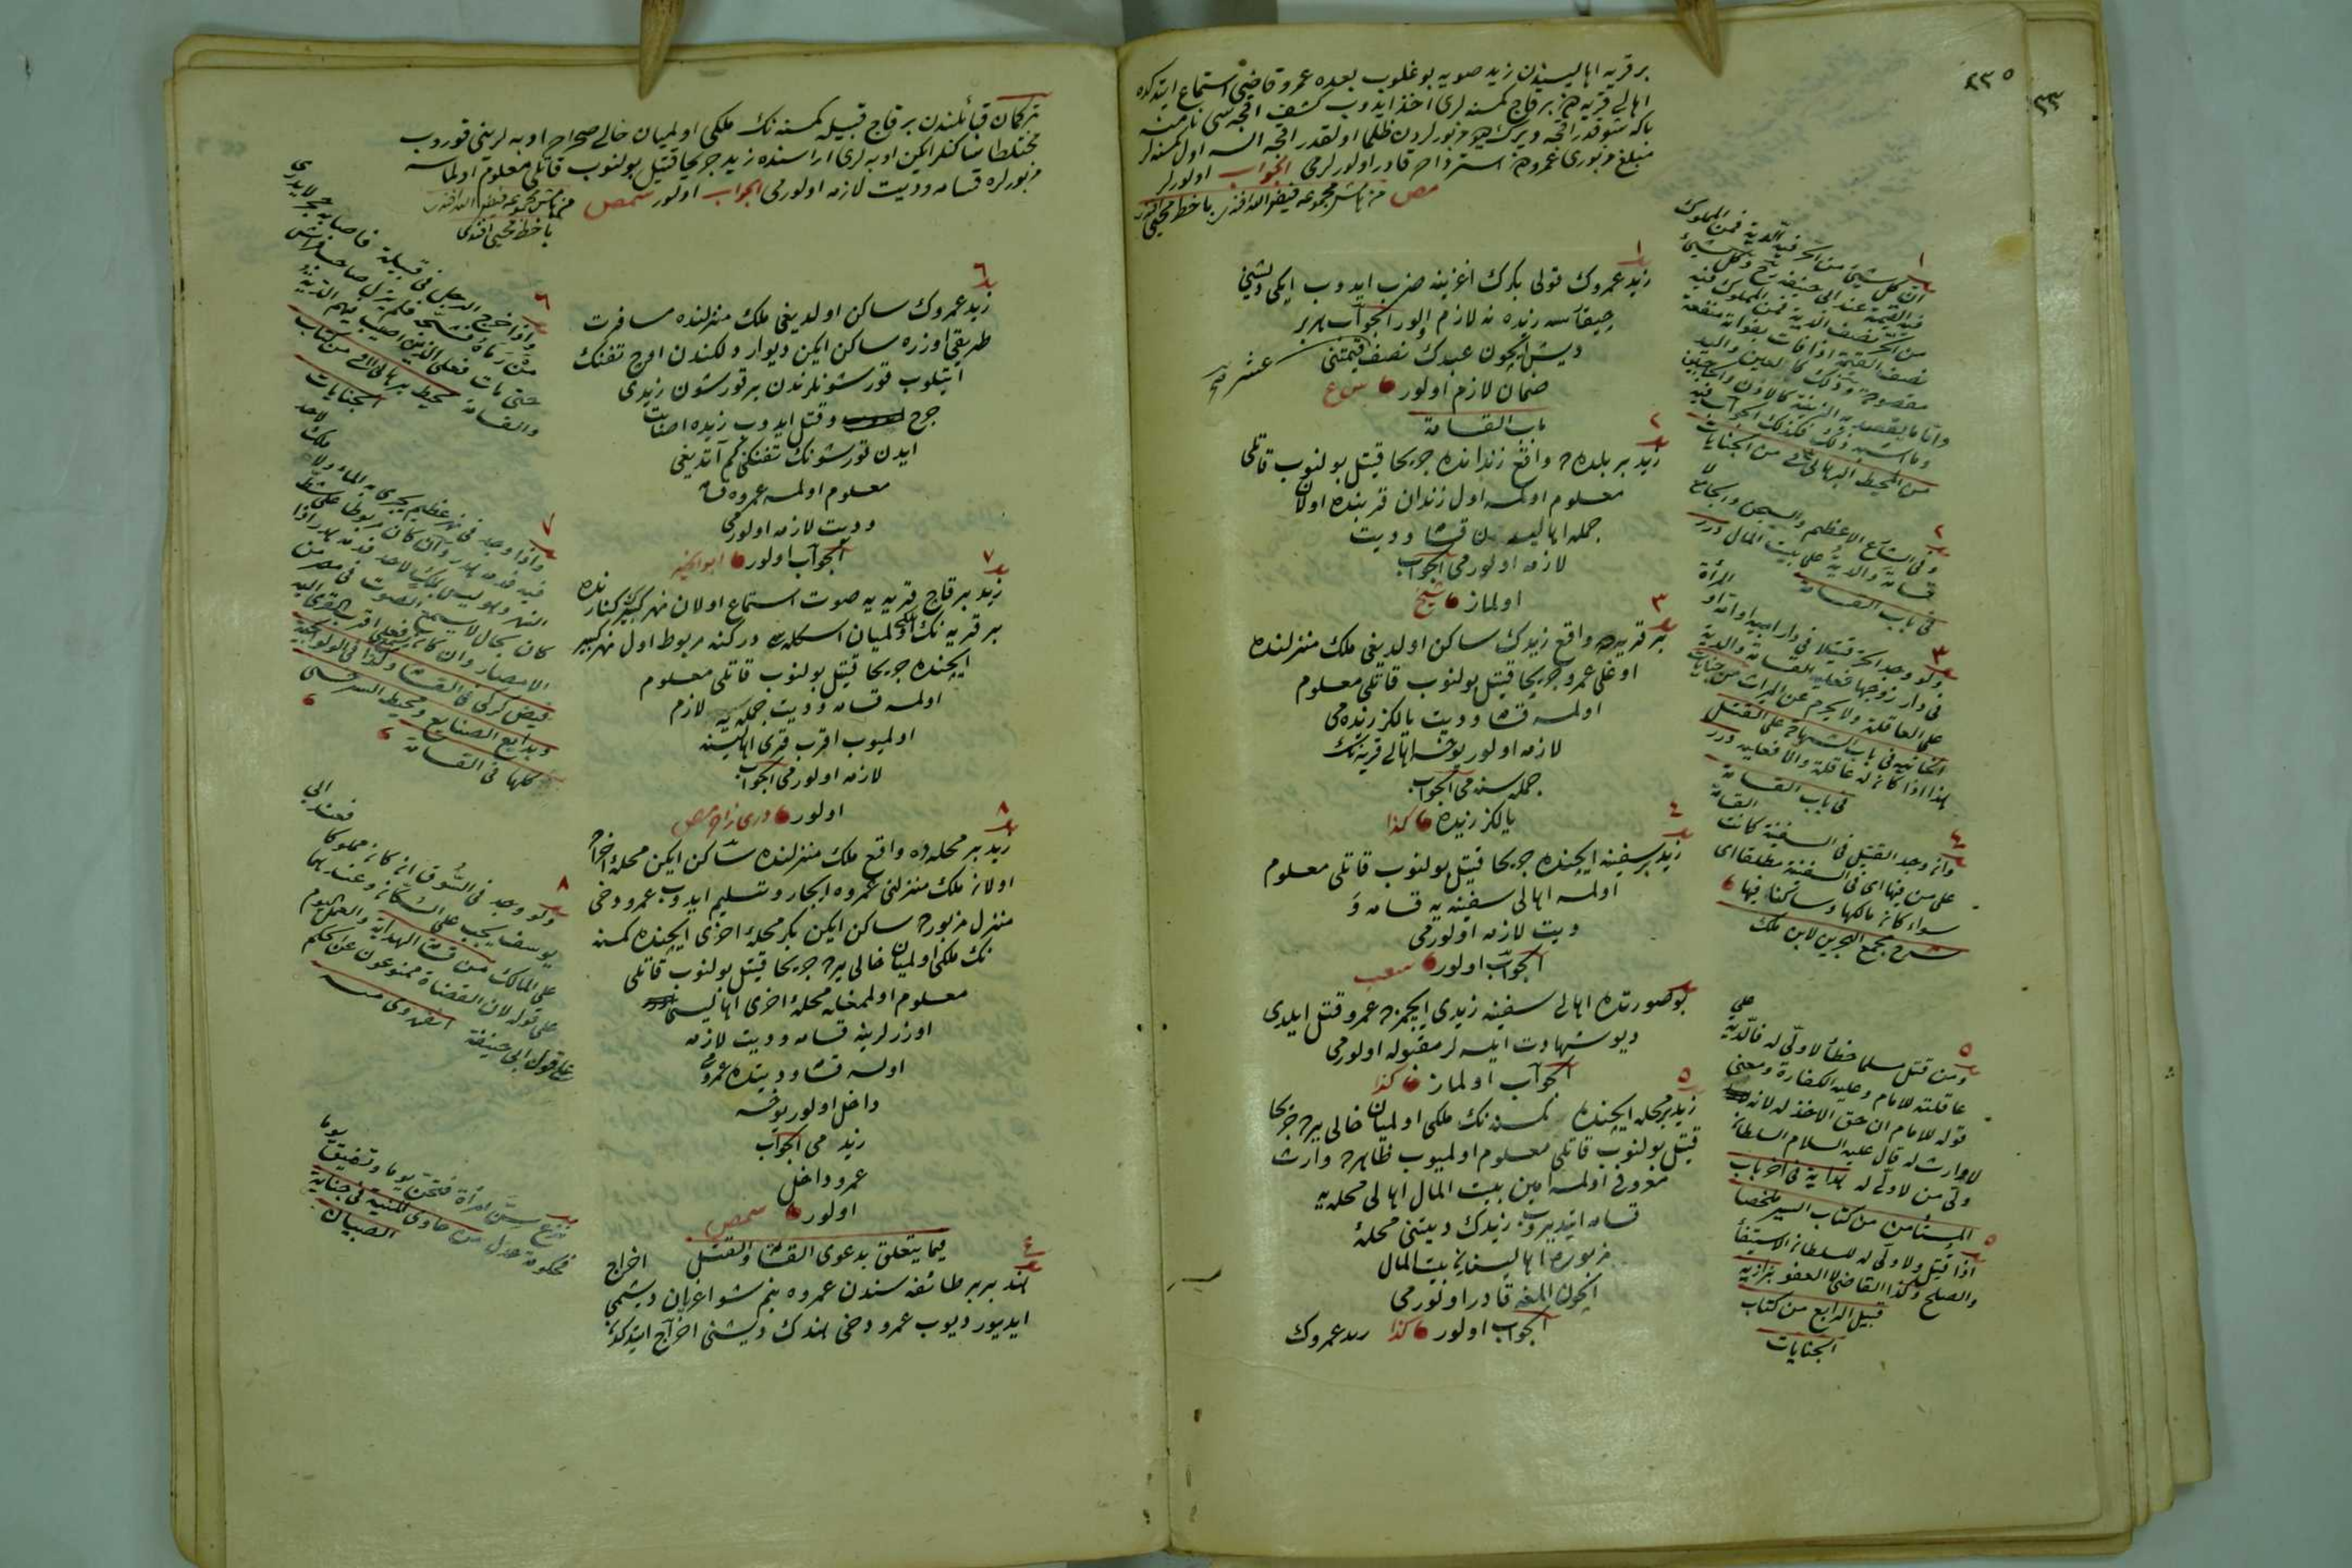 ٢٣٥
بر قريه اهاليسندن زيد صويه بوغلوب بعده عمرو قاضی استماع ايتدكده
اهالی قريه دن بر قاچ كمسنه لری اخذ ايدوب كشف اقچه سی نامنه
بكا شو قدر اقچه ويرك ديو مزبورلردن ظلما اولقدر اقچه السه اول كمسنه لر
مبلغ مزبوری عمرودن استرداده قادر اولورلرمی الجواب اولورلر
مص من هامش مجموعه فيض الله افندی با خط محيی افندی
١
زيد عمروك قولی بكرك اغزينه ضرب ايدوب ايكی ديشنی
چيقارسه زيده نه لازم اولور الجواب هر بر
ديش ايچون عبدك نصف عشر قيمتنی
ضمان لازم اولور
باب القسامة
٢
زيد بر بلده ده واقع زندانده جريحا قتيل بولنوب قاتلی
معلوم اولمسه اول زندان قربنده اولان
جمله اهاليسندن قسامه و ديت
لازمه اولورمی الجواب
اولماز شيخ
٣
بر قريه ده واقع زيدك ساكن اولديغی ملك منزلنده
اوغلی عمرو جريحا قتيل بولنوب قاتلی معلوم
اولمسه قسامه و ديت يالكز زيده می
لازمه اولور يوخسه اهالی قريه نك
جمله سنه می الجواب
يالكز زيده كذا
٤
زيد بر سفينه ايچنده جريحا قتيل بولنوب قاتلی معلوم
اولمسه اهالی سفينه يه قسامه و
ديت لازمه اولورمی
الجواب اولور
بو صورتده اهالی سفينه زيدی ايچمزده عمرو قتل ايلدی
ديو شهادت ايلسه لر مقبوله اولورمی
الجواب اولماز كذا
٥
زيد بر محله ايچنده كمسنه نك ملكی اولميان خالی يرده جريحا
قتيل بولنوب قاتلی معلوم اولميوب ظاهرده وارث
معروفی اولمسه امين بيت المال اهالی محله يه
قسامه ايتديروب زيدك ديتنی محلهٔ
مزبوره اهاليسندن بيت المال
ايچون المغه قادر اولورمی
الجواب اولور كذا زيد عمروك
١
ان كل شیء من الحر فيه الدية فمن المملوك
فيه القيمة عند ابی حنيفة رح وكل شیء
من الحر نصف الدية فمن المملوك فيه
نصف القيمة اذا فات بفواته منفعة
مقصودة وذلك كالعين واليد
واما ما يقصد به الزينة كالاذن والحاجبين
وما اشبه ذلك فكذلك الجواب فيه
من المحيط البرهانی فی من الجنايات
٢
وفی الشارع الاعظم والسجن والجامع لا
قسامة والدية علی بيت المال درر
فی باب القسامة
٣
ولو وجد الحر قتيلا فی دار ابيه او امه او المرأة
فی دار زوجها فعليه القسامة والدية
علی العاقلة ولا يحرم عن الميراث من جنايات
الخانيه فی باب الشهادة علی القتل
هذا اذا كان له عاقلة والا فعليه درر
فی باب القسامة
٤
وان وجد القتيل فی السفينة كانت القسامة
علی من فيها ای فی السفينة مطلقا ای
سواء كان مالكها او ساكنا فيها
شرح مجمع البحرين لابن ملك
٥
ومن قتل مسلما خطأ لا ولی له فالدية علی
عاقلته للامام وعليه الكفارة ومعنی
قوله للامام ان حق الاخذ له لانه
لا وارث له قال عليه السلام السلطان
ولی من لا ولی له هداية فی اخر باب
المستأمن من كتاب السير ملخصا
٥
اذا قتل ولا ولی له للسلطان الاستيفا
والصلح وكذا القاضی لا العفو بزازيه
قبيل الرابع من كتاب
الجنايات
تركمان قبائلندن بر قاچ قبيله كمسنه نك ملكی اولميان خالی صحراده اوبه لرينی قوروب
مختلطا ساكنلر ايكن اوبه لری اراسنده زيد جريحا قتيل بولنوب قاتلی معلوم اولماسه
مزبورلره قسامه و ديت لازمه اولورمی الجواب اولور
من هامش مجموعه فيض الله افندی
با خط محيی افندی
٦
زيد عمروك ساكن اولديغی ملك منزلنده مسافرت
طريقی اوزره ساكن ايكن ديوار دلكندن اوچ تفنك
اتيلوب قورشونلرندن بر قورشون زيدی
جرح و قتل ايدوب زيده اصابت
ايدن قورشونك تفنكنی كم آتديغی
معلوم اولمسه عمروه قسامه
و ديت لازمه اولورمی
الجواب اولور ابو الخير
٧
زيد بر قاچ قريه يه صوت استماع اولنان نهر كبيرك كنارنده
بر قريه نك ملكی اولميان اسكله سی دركنه مربوط اول نهر كبير
ايچنده جريحا قتيل بولنوب قاتلی معلوم
اولمسه قسامه و ديت جمله يه لازم
اولميوب اقرب قری اهاليسنه
لازمه اولورمی الجواب
اولور
٨
زيد بر محله ده واقع ملك منزلنده ساكن ايكن محلهٔ اخراده
اولان ملك منزلنی عمروه ايجار و تسليم ايدوب عمرو دخی
منزل مزبورده ساكن ايكن بكر محلهٔ اخری ايچنده كمسنه
نك ملكی اولميان خالی يرده جريحا قتيل بولنوب قاتلی
معلوم اولمغله محلهٔ اخری اهاليسی
اوزرلرينه قسامه و ديت لازمه
اولسه قسامه و ديتده عمرو می
داخل اولور يوخسه
زيد می الجواب
عمرو داخل
اولور
فيما يتعلق بدعوی القسامة والقتل اخراج
٤
هند بربر طائفه سندن عمروه بنم شو اغريان ديشمی
ايديور ديوب عمرو دخی هندك ديشنی اخراج ايتدكده
٦
واذا خرج الرجل فی قبيلة فاصابه حجر لا يدری
من رماه فشجه فلم يزل صاحب فراش
حتی مات فعلی الذين اصيب فيهم الدية
والقسامة محيط برهانی فی من كتاب
الجنايات
٧
واذا وجد فی نهر عظيم يجری به الماء ولا ملك لاحد
فيه فدمه هدر وان كان مربوطا علی شط
النهر وهو ليس بملك لاحد فدمه هدر اذا
كان بحال لا يسمع الصوت فی مصر من
الامصار وان كان يسمع فعلی اقرب القری اليه
فيض كركی فی القسامة وكذا فی الولوالجية
وبدايع الصنايع ومحيط السرخسی
كلها فی القسامة
٨
ولو وجد فی السوق ان كان مملوكا فعند ابی
يوسف يجب علی السكان وعندهما
علی المالك من قسامة الهداية والعمل اليوم
علی قوله لان القضاة ممنوعون عن الحكم
علی قول ابی حنيفة
نزع سن امرأة فتحرق يوما وتضيق يوما
فحكومة عدل من حاوی المنية فی جناية
الصبيان